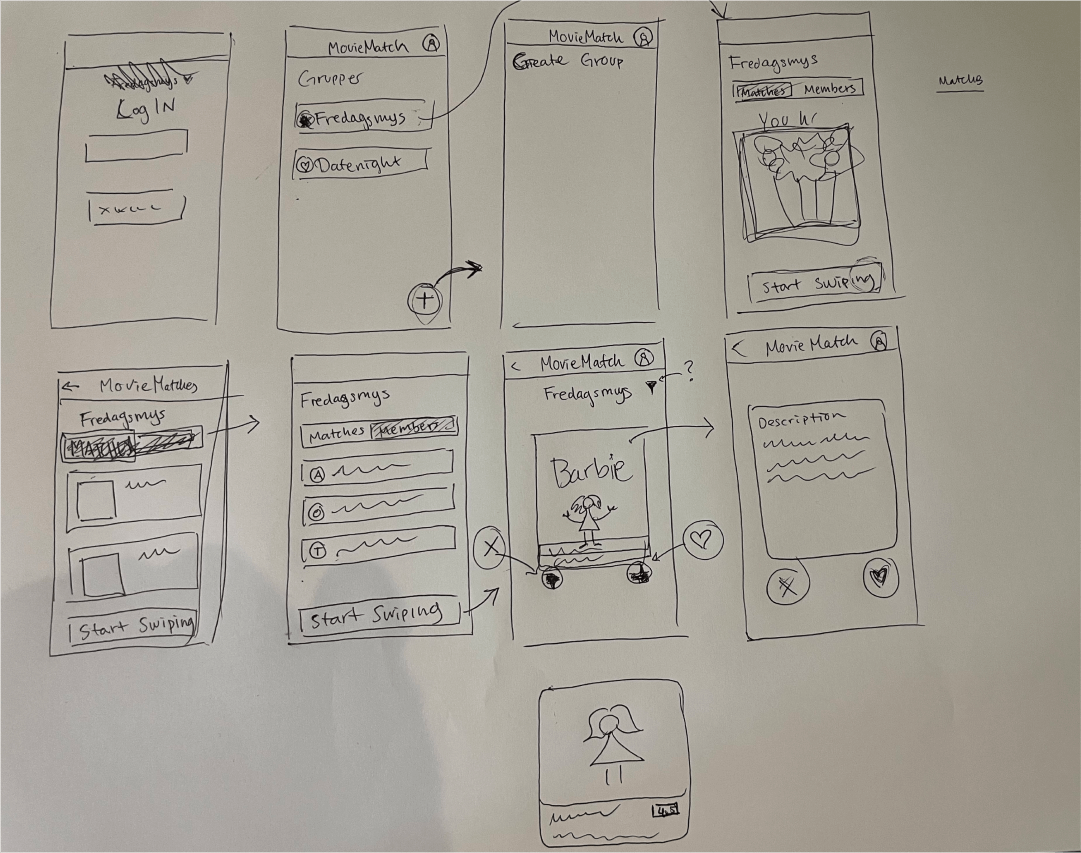 Log IN
MovieMatch A
Grupper
Fredagsmys
Datenight
+
MovieMatch A
Create Group
Fredagsmys
Matches Members
You
Start Swiping
Matches
← MovieMatches
Fredagsmys
MATCHES
Start Swiping
Fredagsmys
Matches Members
A
O
T
Start Swiping
< MovieMatch A
Fredagsmys
?
Barbie
X
< MovieMatch A
Description
X
4.5